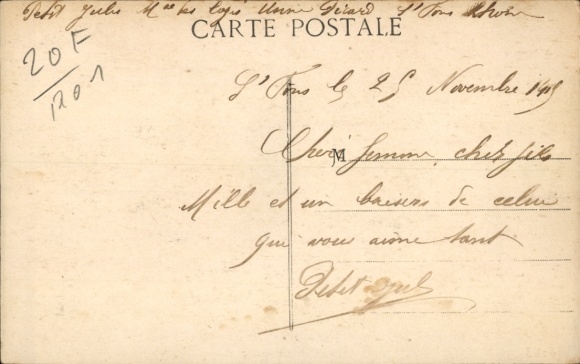 Petit Jules Mal des logis Usine Picard St Fons Rhône
CARTE POSTALE
20F
1201
St Fons le 25 Novembre 1915
M
Chère femme, cher fils
Mille et un baisers de celui
qui vous aime tant
Petit Jules